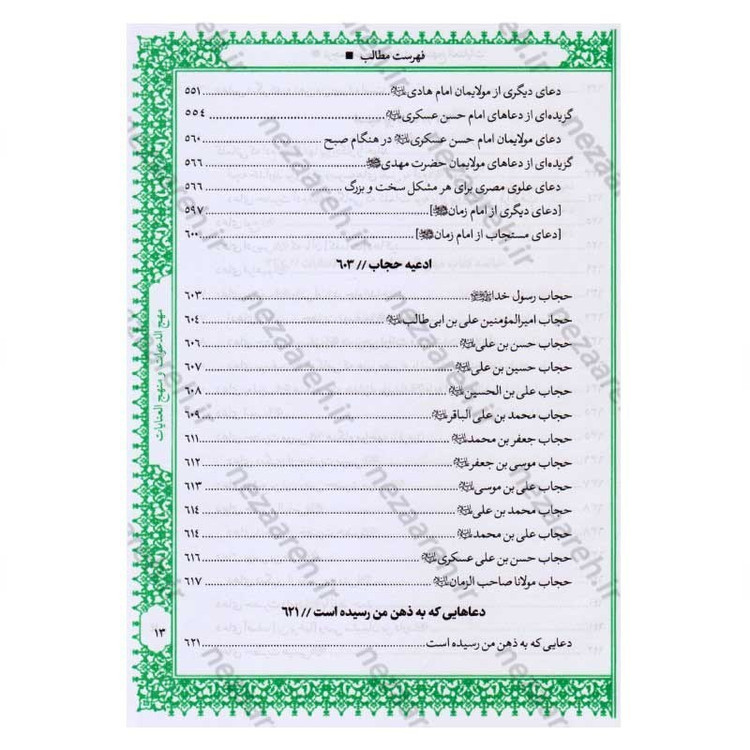 فهرست مطالب ■
دعای دیگری از مولایمان امام هادی ........ ۵۵۱
گزیده‌ای از دعاهای امام حسن عسکری ........ ۵۵۴
دعای مولایمان امام حسن عسکری در هنگام صبح ........ ۵۶۰
گزیده‌ای از دعاهای مولایمان حضرت مهدی ........ ۵۶۶
دعای علوی مصری برای هر مشکل سخت و بزرگ ........ ۵۶۶
[دعای دیگری از امام زمان] ........ ۵۹۷
[دعای مستجاب از امام زمان] ........ ۶۰۰
ادعیه حجاب // ۶۰۳
حجاب رسول خدا ........ ۶۰۳
حجاب امیرالمؤمنین علی بن ابی‌طالب ........ ۶۰۴
حجاب حسن بن علی ........ ۶۰۶
حجاب حسین بن علی ........ ۶۰۷
حجاب علی بن الحسین ........ ۶۰۸
حجاب محمد بن علی الباقر ........ ۶۰۹
حجاب جعفر بن محمد ........ ۶۱۱
حجاب موسی بن جعفر ........ ۶۱۲
حجاب علی بن موسی ........ ۶۱۳
حجاب محمد بن علی ........ ۶۱۴
حجاب علی بن محمد ........ ۶۱۴
حجاب حسن بن علی عسکری ........ ۶۱۶
حجاب مولانا صاحب الزمان ........ ۶۱۷
دعاهایی که به ذهن من رسیده است // ۶۲۱
دعایی که به ذهن من رسیده است ........ ۶۲۱
مهج الدعوات و منهج العنایات
۱۳
nezaareh.ir